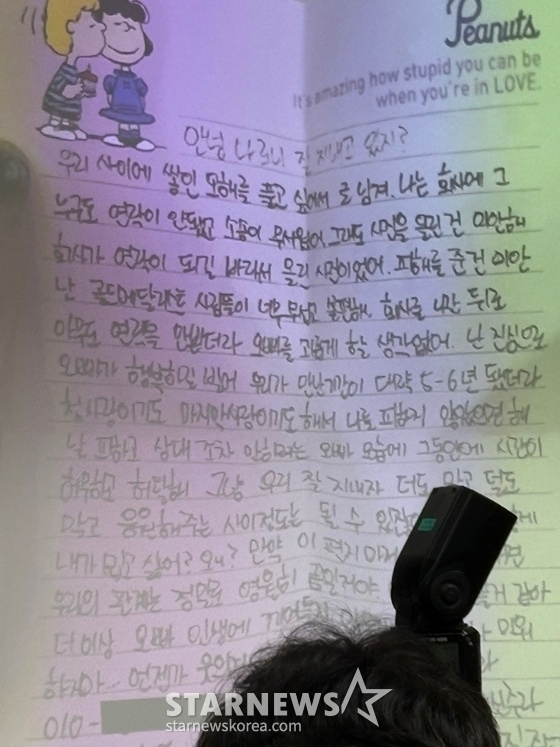 Peanuts
It's amazing how stupid you can be
when you're in LOVE.
안녕 나 잘 지내고 있지?
우리 사이에 쌓인 오해를 풀고 싶어서 글 남겨. 나는 회사에 그
누구도 연락이 안됐고 소송이 무서웠어. 그래도 사진을 올린 건 미안해
회사가 연락이 되길 바라서 올린 사진이었어. 피해를 준건 미안
난 골드메달리스트 사람들이 너무 무섭고 회사를 나간 뒤로
아무도 연락을 안받더라 오빠를 괴롭게 할 생각없어. 난 진심으로
오빠가 행복하길 빌어 우리가 만난기간이 대략 5-6년 됐더라
첫사랑이기도 마지막사랑이기도 해서 나를 피하지 않았으면 해
날 피하고 상대 조차 안하려는 오빠 모습에 그동안에 시간이
허무하고 그냥 우리 잘 지내자 더도 말고 덜도
말고 응원해주는 사이정도는 될 수
내가 밉고 싫어? 왜? 만약 이 편지마저
우리의 관계는 정말로 영원히 끝일거야 같아
더이상 오빠 인생에 미워
하지마.. 언젠가
010-
STARNEWS
starnewskorea.com